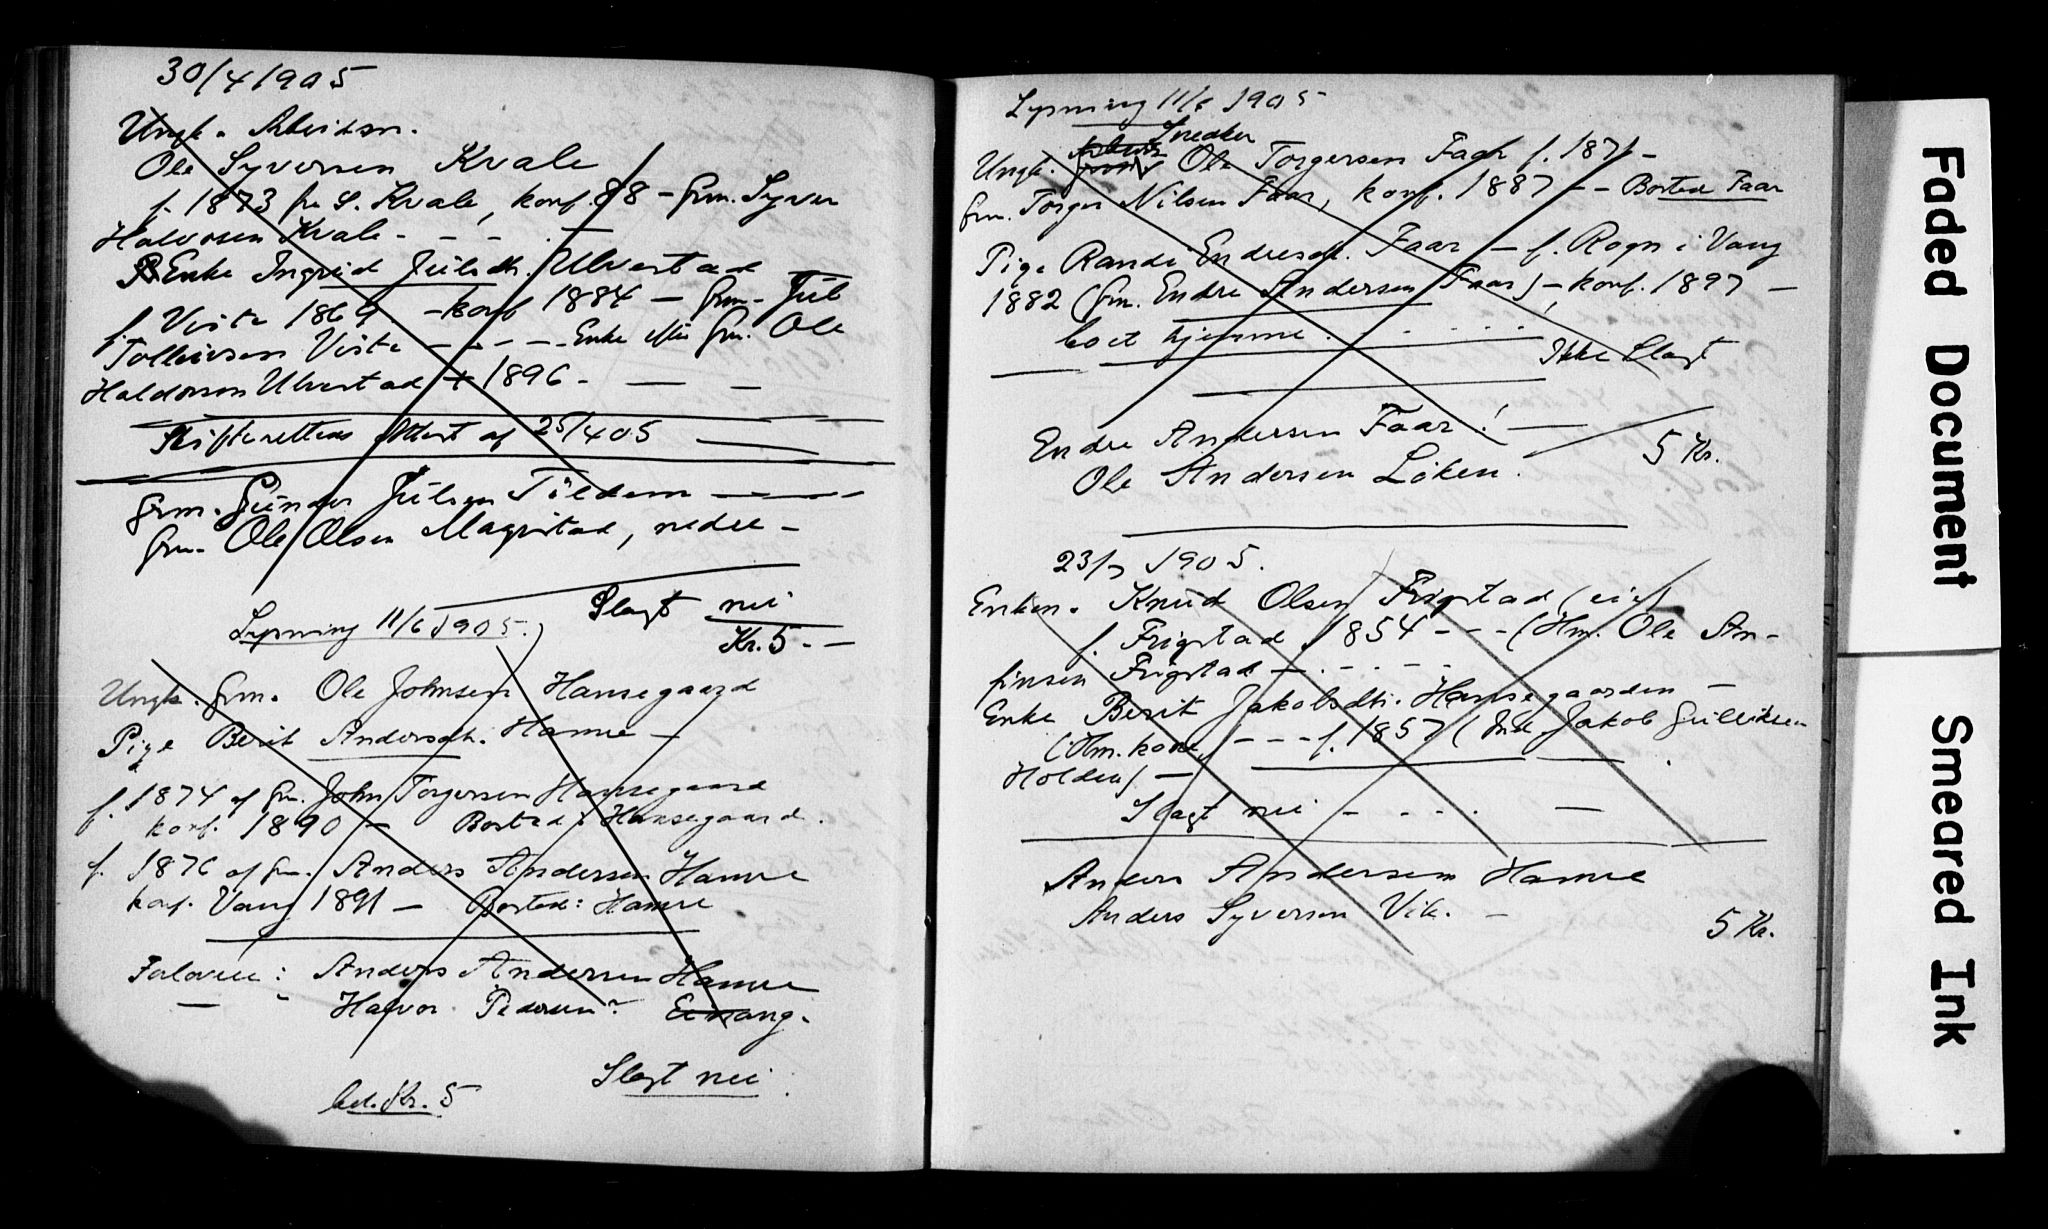 30/4 1905
Ungk. Arbeidsm.
Ole Syversen Kvale
f. 1873 fr S. Kvale, konf. 88 - Grm. Syver
Halvorsen Kvale - - - . -
Enke Ingrid Juulsdtr. Ulvestad
f. Viste 1869 - konf 1884 - Grm. Juul
Tolleivsen Viste - - - - Enke efter Grm. Ole
Haldorsen Ulvestad + 1896 - - -
Skifterettens Attest af 25/4 05
Grm. Gunder Juulsen Tildem
Grm. Ole Olsen Magistad, nedre -
Slagt nei
Kr. 5 - -
Lysning 11/6 1905.
Ungk. Grm. Ole Johnsen Hansegaard
Pige Berit Andersdt. Hamre -
f. 1874 af Grm. John Torgersen Hansegaard
konf. 1890 - Bosted: Hansegaard.
f. 1876 af Grm. Anders Andersen Hamre
konf. Vang 1891 - Bosted: Hamre
Forlovere: Anders Andersen Hamre
— " Halvor Pedersen Einang.
Slagt nei
bet. Kr. 5
Lysning 11/6 1905
Snedker
Ungk. Ole Torgersen Faar f. 1871 -
Grm. Torger Nilsen Faar, konf. 1887 - - Bosted Faar
Pige Randi Endresdt. Faar - f. Rogn i Vang
1882 (Grm. Endre Andersen Faar) - konf. 1897 -
boet hjemme.
Ikke Slagt
Endre Andersen Faar! -
5 Kr.
Ole Andersen Löken.
23/7 1905.
Enkem. Knud Olsen Frigstad (eier)
f. Frigstad 1854 - - - (Hm. Ole An-
finsen Frigstad - . - . - -
Enke Berit Jakobsdtr. Hansegaarden -
- - - f. 1857 ( Jakob Gulliksen
Holden) -
Slagt nei - - - . -
Anders Andersen Hamre
Anders Syversen Vik. -
5 Kr.
Faded Document
Smeared Ink